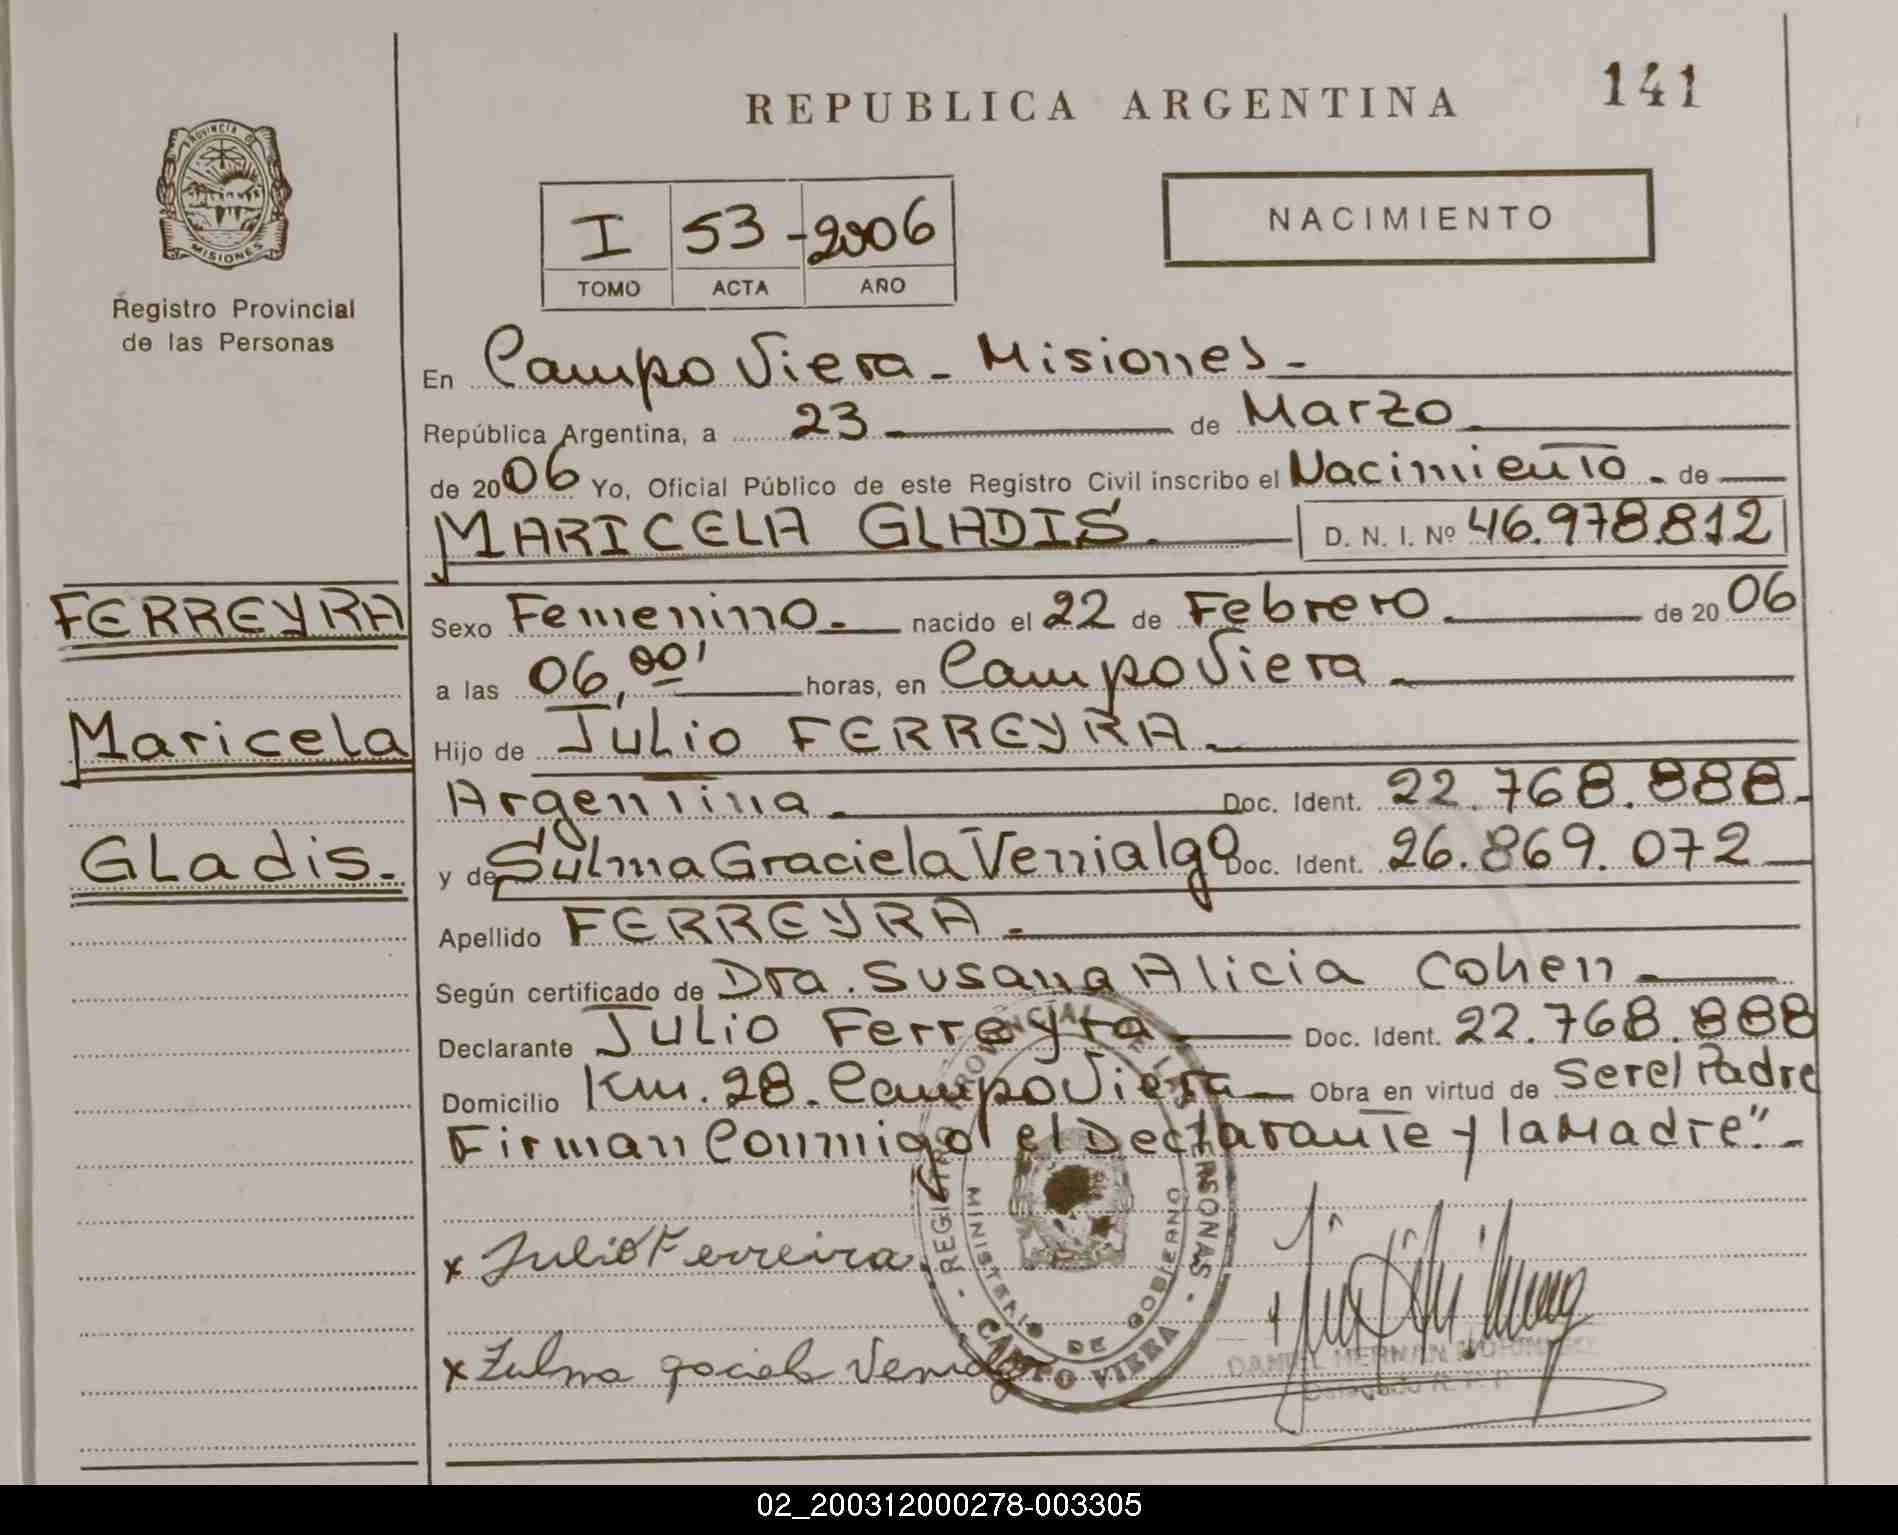 REPUBLICA ARGENTINA
141
PROVINCIA DE
MISIONES
Registro Provincial
de las Personas
I 53 - 2006
TOMO ACTA AÑO
NACIMIENTO
En Campo Viera - Misiones -
República Argentina, a 23 de Marzo
de 2006 Yo, Oficial Público de este Registro Civil inscribo el Nacimiento - de
MARICELA GLADIS. D. N. I. Nº 46.978.812
FERREYRA
Sexo Femenino. nacido el 22 de Febrero de 2006
a las 06,00' horas, en Campo Viera
Maricela
Hijo de Julio FERREYRA
Argentina Doc. Ident. 22.768.888-
Gladis.
y de Sulma Graciela Venialgo Doc. Ident. 26.869.072
Apellido FERREYRA.
Según certificado de Dra. Susana Alicia Cohen
Declarante Julio Ferreyra Doc. Ident. 22.768.888
Domicilio Km. 28. Campo Viera Obra en virtud de Ser el Padre
Firman Conmigo el Declarante y la Madre".-
x Julio Ferreira
x Zulma
REGISTRO PROVINCIAL DE LAS PERSONAS
MINISTERIO DE GOBIERNO
CAMPO VIERA
DANIEL HERNAN
Delegado R. P. P.
02_200312000278-003305